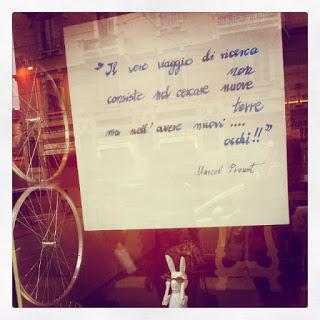 "Il vero viaggio di ricerca
non
consiste nel cercare nuove
terre
ma nell'avere nuovi ....
occhi!!"
Marcel Proust